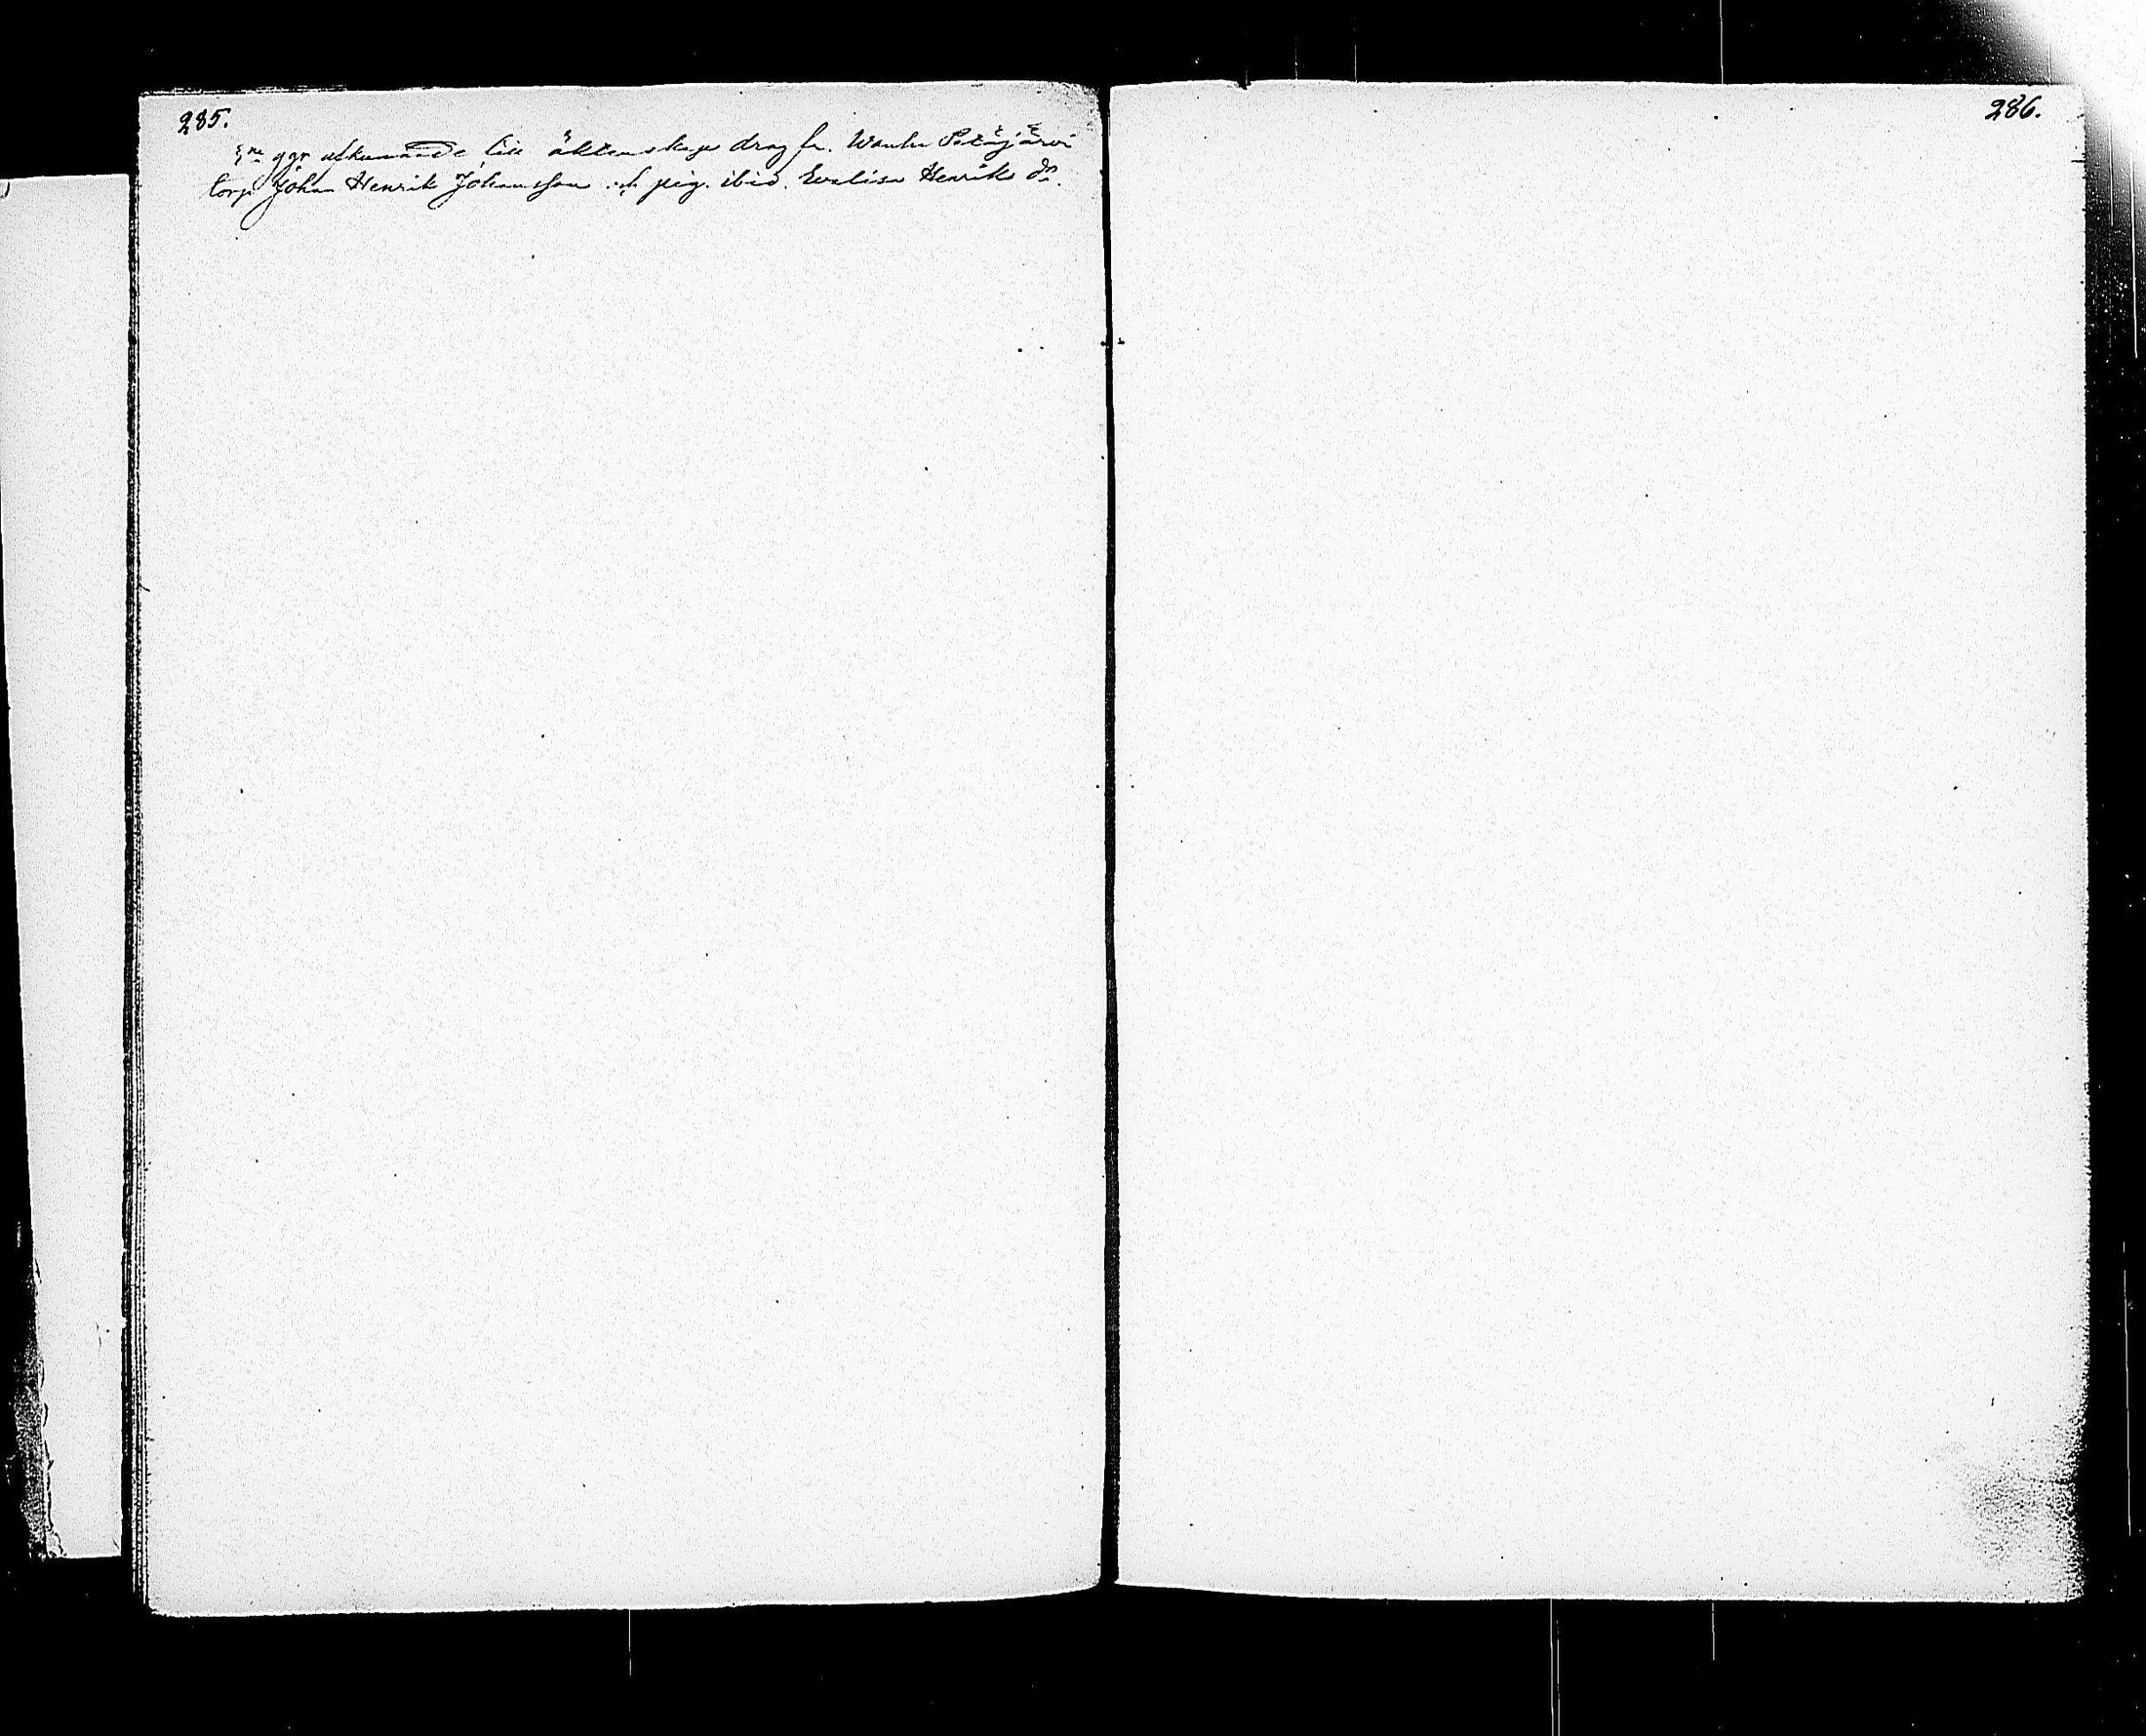 285.
3ne ggr afkunnade till äktenskap drag fr. Wanha Petäjärvi
torp. Johan Henrik Johansson och pig. ibid. Evalisa Henriks dr.
286.